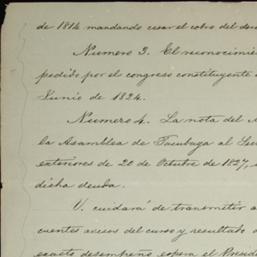 de 1814 mandando cesar el cobro del
Numero 3. El reconocimie
pedido por el congreso constituyente
Junio de 1824.
Numero 4. La nota del
la Asamblea de Tacubaya al
exteriores de 20 de Octubre de 1827,
dicha deuda.
V. cuidará de transmitir a
cuentes avisos del curso y resultado
exacto desempeño espera el Presid